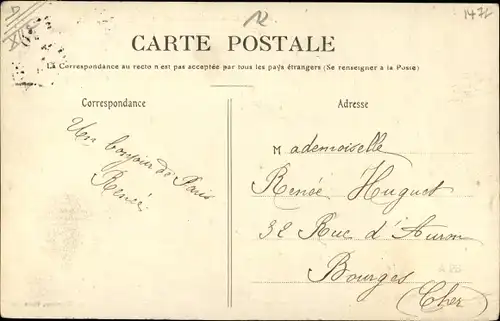 1472
CARTE POSTALE
La Correspondance au recto n'est pas acceptée par tous les pays étrangers (Se renseigner à la Poste)
Correspondance
Adresse
Un bonjour de Paris
Renée
Mademoiselle
Renée Huguet
32 Rue d'Auron
Bourges
(Cher)